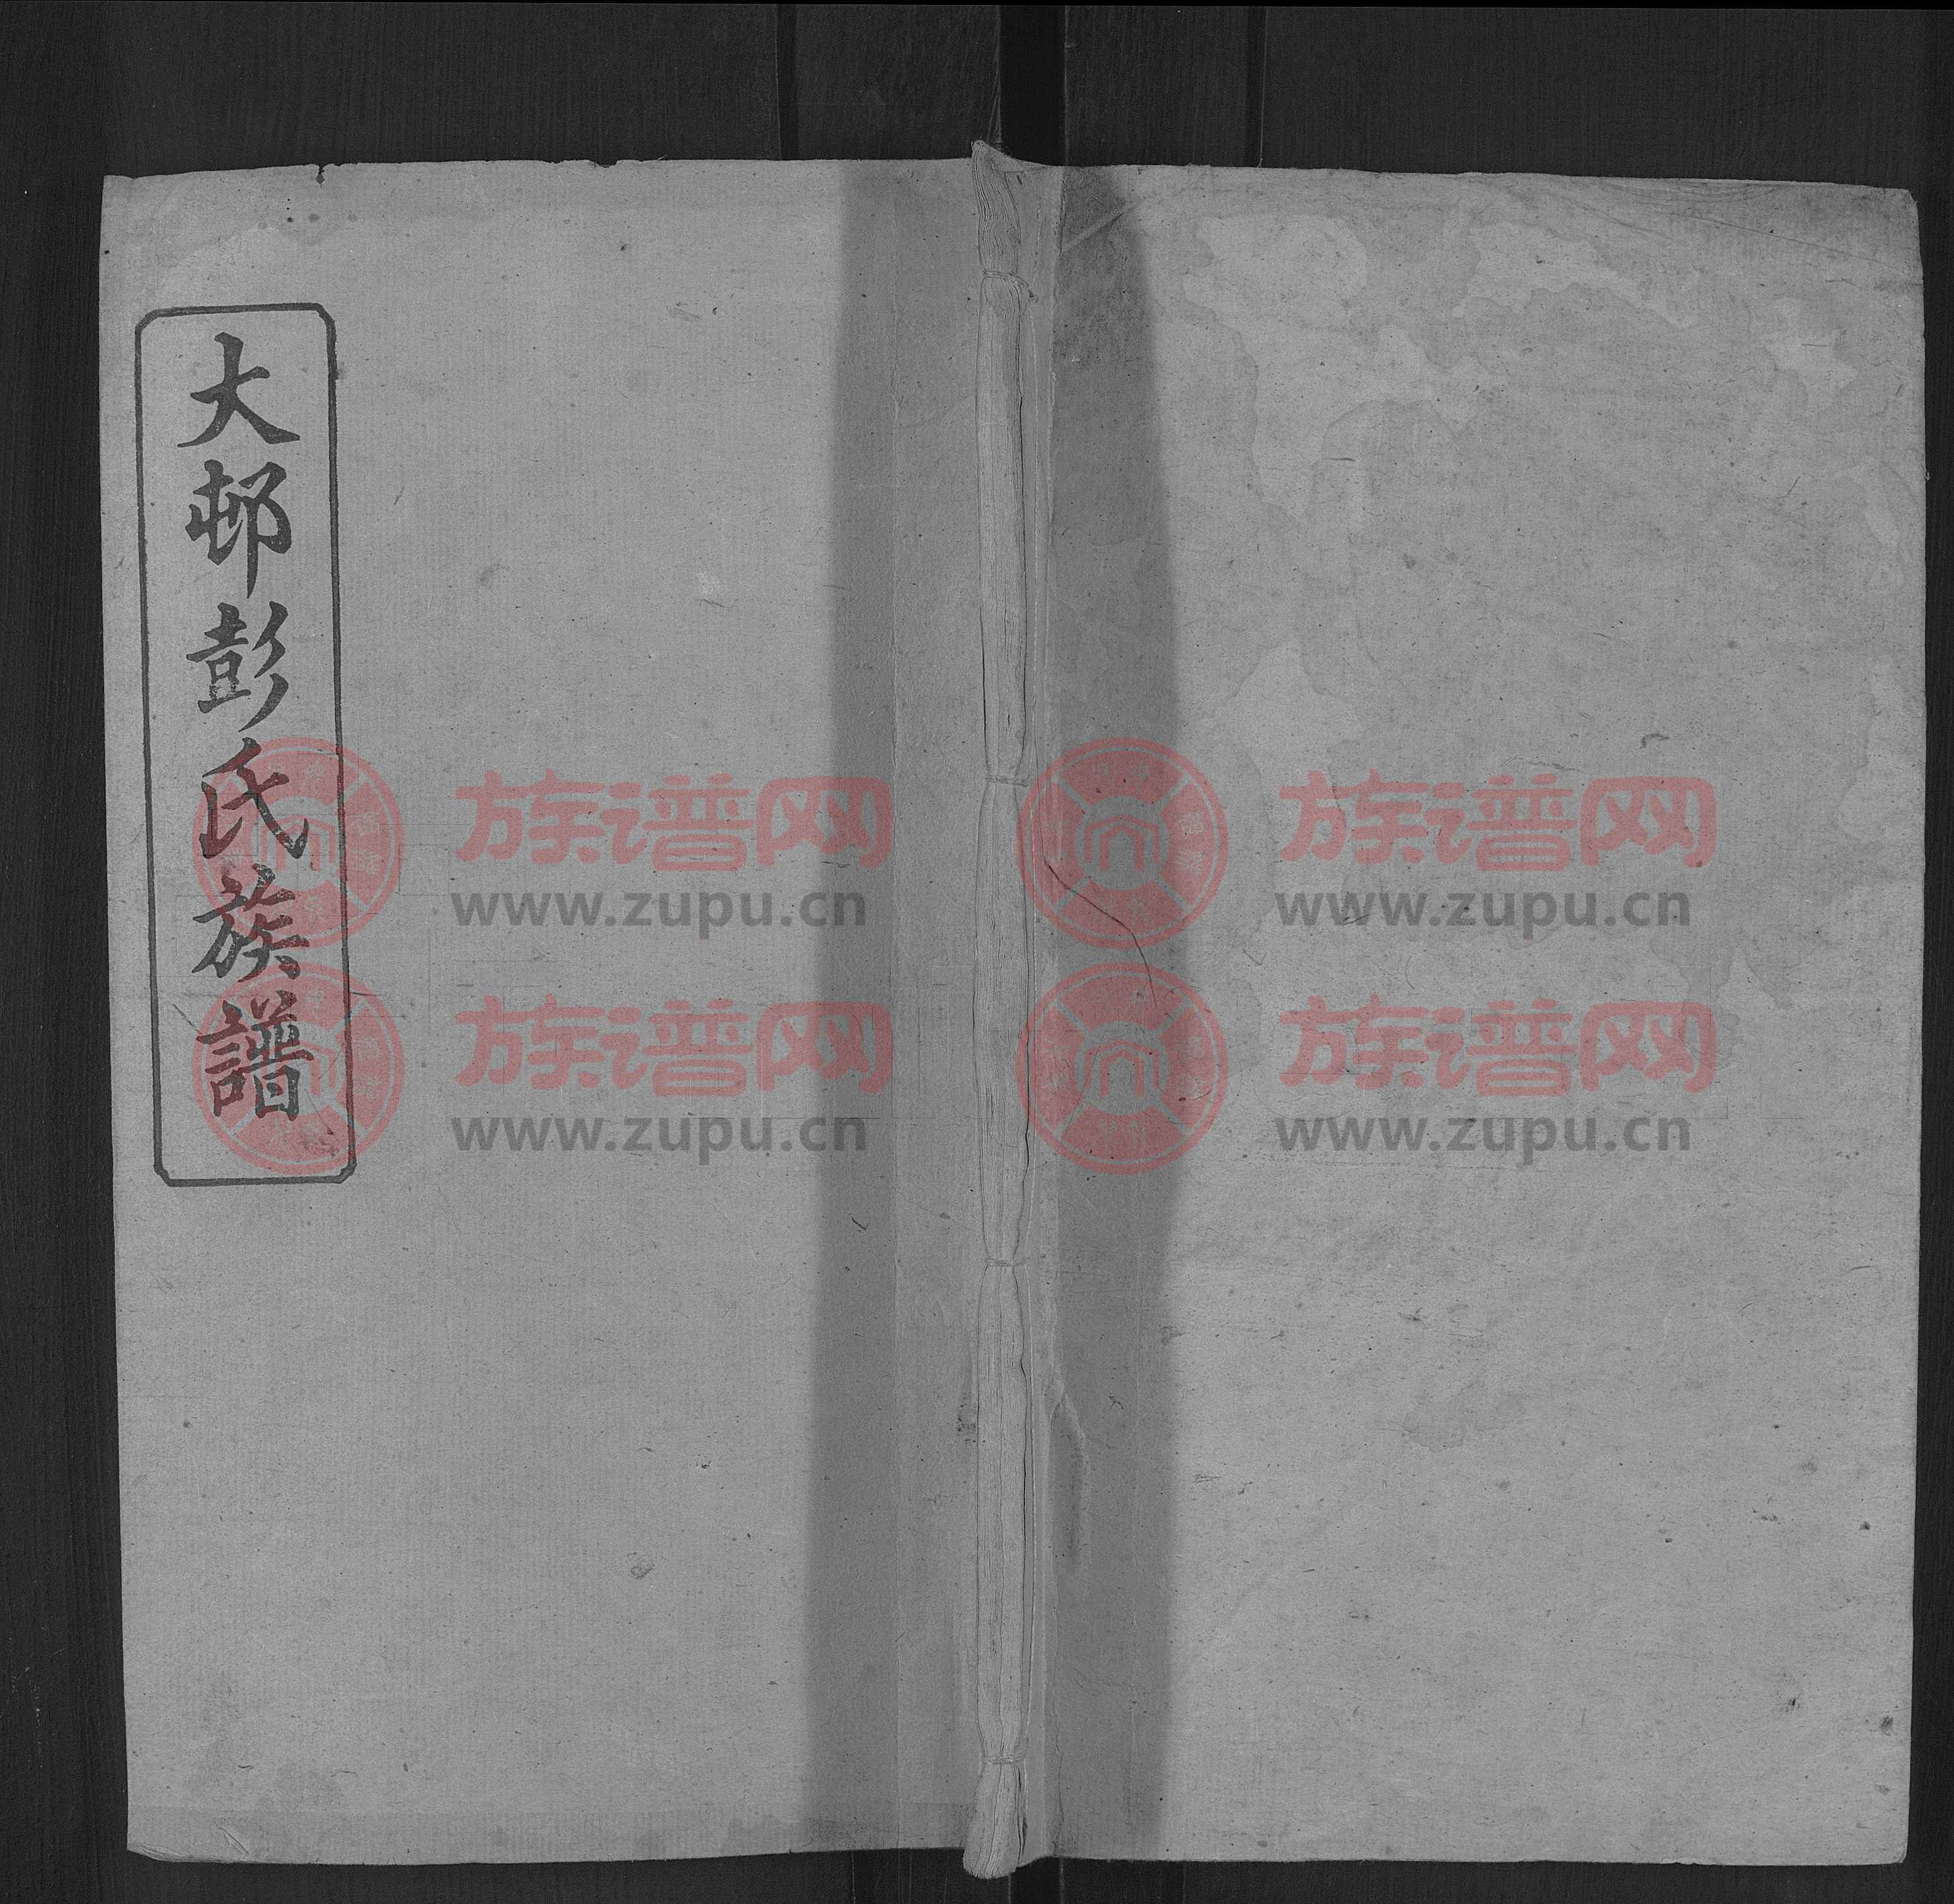 大邨彭氏族譜
族谱网
www.zupu.cn
族谱网
www.zupu.cn
族谱网
www.zupu.cn
族谱网
www.zupu.cn